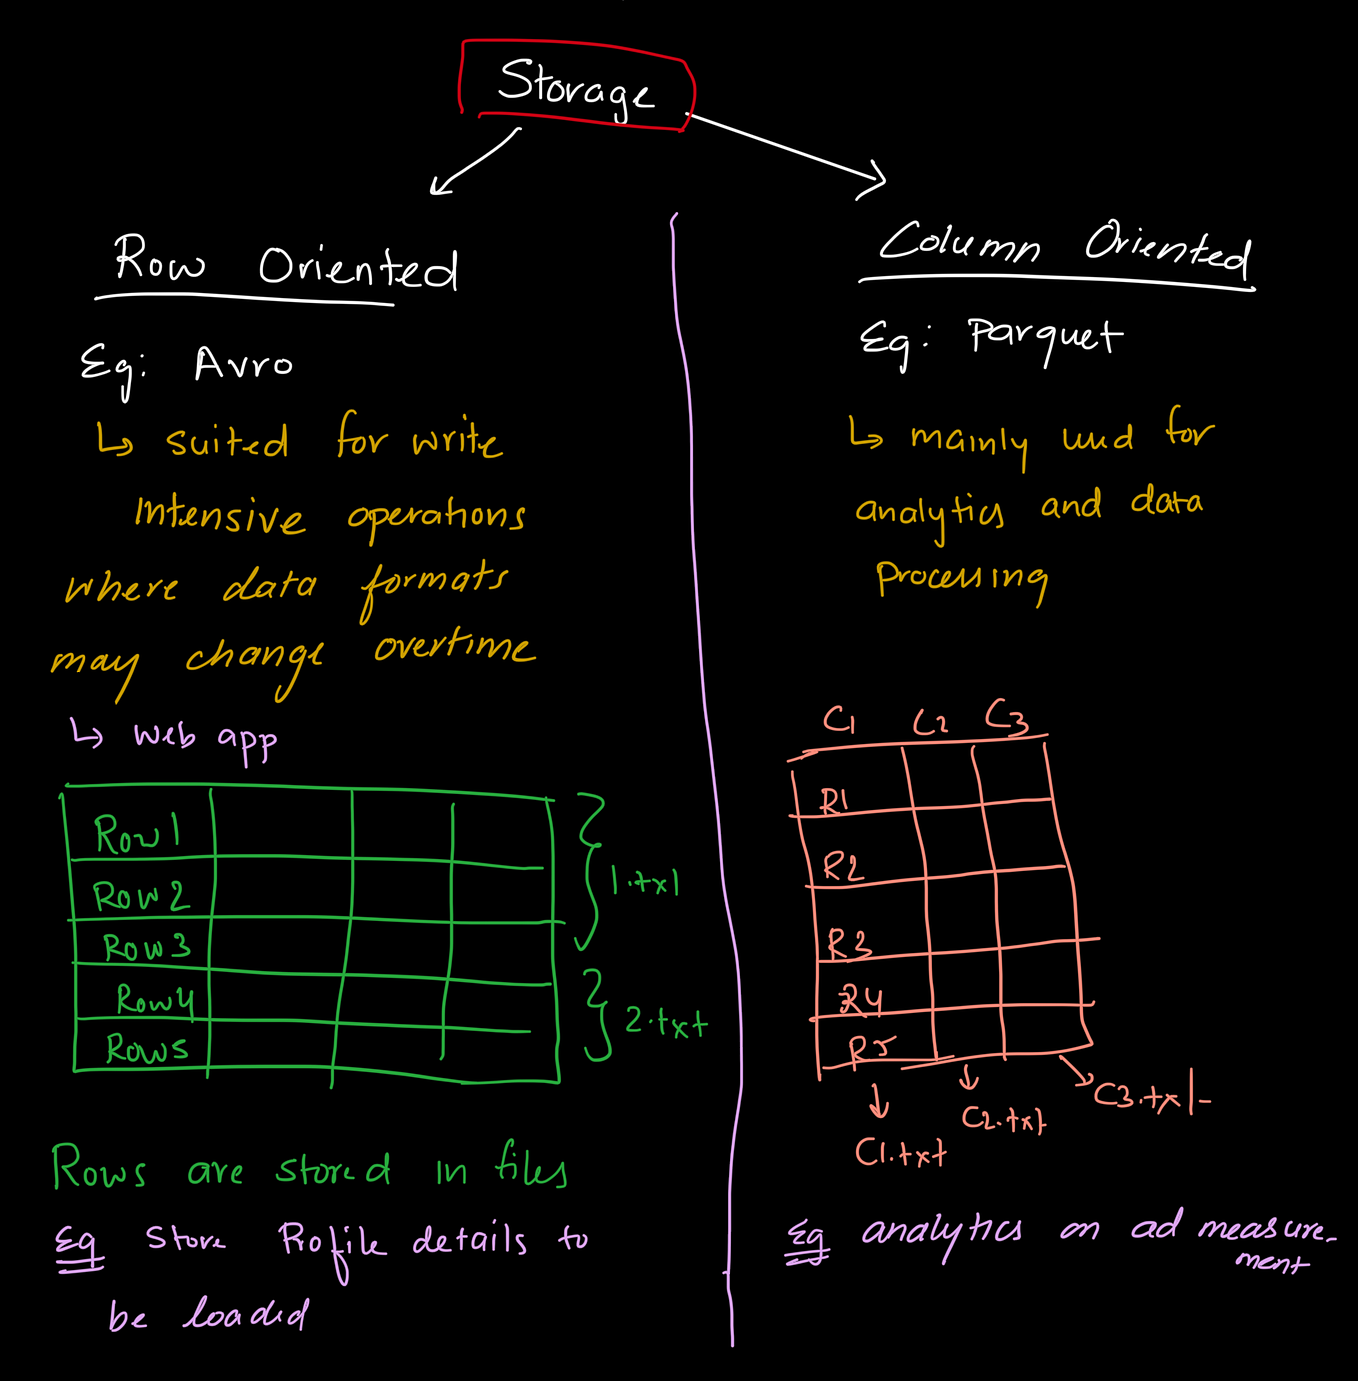 Storage
Row Oriented
Eg: Avro
↳ suited for write
Intensive operations
where data formats
may change overtime
↳ web app
Row1
Row2
Row3
Row4
Row5
1.txt
2.txt
Rows are stored in files
Eg Store Profile details to
be loaded
Column Oriented
Eg: Parquet
↳ mainly used for
analytics and data
Processing
C1 C2 C3
R1
R2
R3
R4
R5
C1.txt
C2.txt
C3.txt
Eg analytics on ad measure-
ment